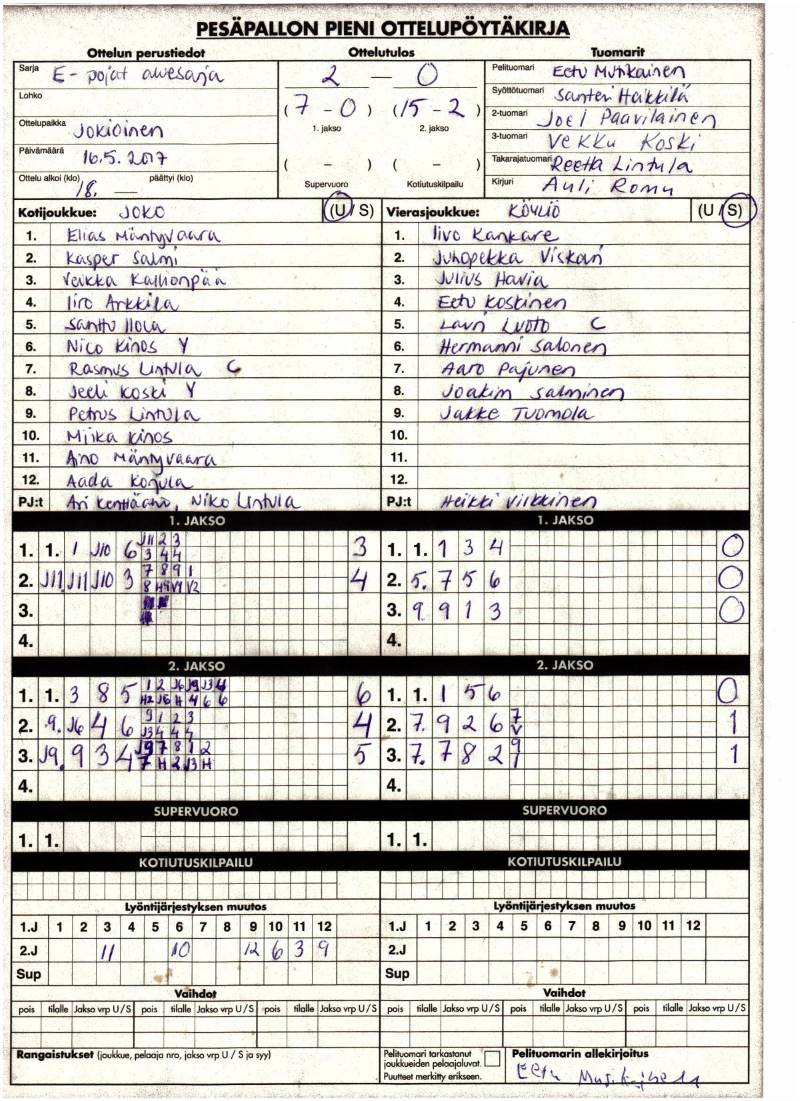 PESÄPALLON PIENI OTTELUPÖYTÄKIRJA
Ottelun perustiedot
Sarja E-pojat aluesarja
Lohko
Ottelupaikka Jokioinen
Päivämäärä 16.5.2017
Ottelu alkoi (klo) 18. — päättyi (klo)
Ottelutulos
2 — 0
(7 - 0) (15 - 2)
1. jakso 2. jakso
( - ) ( - )
Supervuoro Kotiutuskilpailu
Tuomarit
Pelituomari Eetu Mutikainen
Syöttötuomari Santeri Heikkilä
2-tuomari Joel Paavilainen
3-tuomari Vekku Koski
Takarajatuomari Reetta Lintula
Kirjuri Auli Romu
Kotijoukkue: JOKO (U / S)
1. Elias Mäntyvaara
2. Kasper Salmi
3. Veikka Kallionpää
4. Iiro Arkkila
5. Santtu Ilola
6. Nico Kinos Y
7. Rasmus Lintula C
8. Jeeli Koski Y
9. Petrus Lintula
10. Miika Kinos
11. Aino Mäntyvaara
12. Aada Kojula
PJ:t Ari Niko Lintula
Vierasjoukkue: KÖYLIÖ (U / S)
1. Iivo Kankare
2. Juhopekka Viskari
3. Julius Havia
4. Eetu Koskinen
5. Lauri Luoto C
6. Hermanni Salonen
7. Aaro Pajunen
8. Joakim Salminen
9. Jakke Tuomola
10.
11.
12.
PJ:t Heikki Vilkkinen
1. JAKSO
1. 1. 1 J10 6 J11 2 3 3
3 4 4
2. J11. J11 J10 3 7 8 9 1 4
8 H9 V1 V2
3.
4.
1. JAKSO
1. 1. 1 3 4 0
2. 5. 7 5 6 0
3. 9. 9 1 3 0
4.
2. JAKSO
1. 1. 3 8 5 1 2 J6 J9 J3 4 6
H2 J6 H 4 6 6
2. 9. J6 4 6 9 1 2 3 4
J3 4 4 4
3. J9. 9 3 4 J9 7 8 1 2 5
7 H 2 J3 H
4.
2. JAKSO
1. 1. 1 5 6 0
2. 7. 9 2 6 7 1
V
3. 7. 7 8 2 9 1
1
4.
SUPERVUORO
1. 1.
SUPERVUORO
1. 1.
KOTIUTUSKILPAILU
KOTIUTUSKILPAILU
Lyöntijärjestyksen muutos
1.J 1 2 3 4 5 6 7 8 9 10 11 12
2.J 11 10 12 6 3 9
Sup
Lyöntijärjestyksen muutos
1.J 1 2 3 4 5 6 7 8 9 10 11 12
2.J
Sup
Vaihdot
pois tilalle Jakso vrp U/S pois tilalle Jakso vrp U/S pois tilalle Jakso vrp U/S
Vaihdot
pois tilalle Jakso vrp U/S pois tilalle Jakso vrp U/S pois tilalle Jakso vrp U/S
Rangaistukset (joukkue, pelaaja nro, jakso vrp U / S ja syy)
Pelituomari tarkastanut
joukkueiden pelaajaluvat.
Puutteet merkitty erikseen.
Pelituomarin allekirjoitus
Eetu